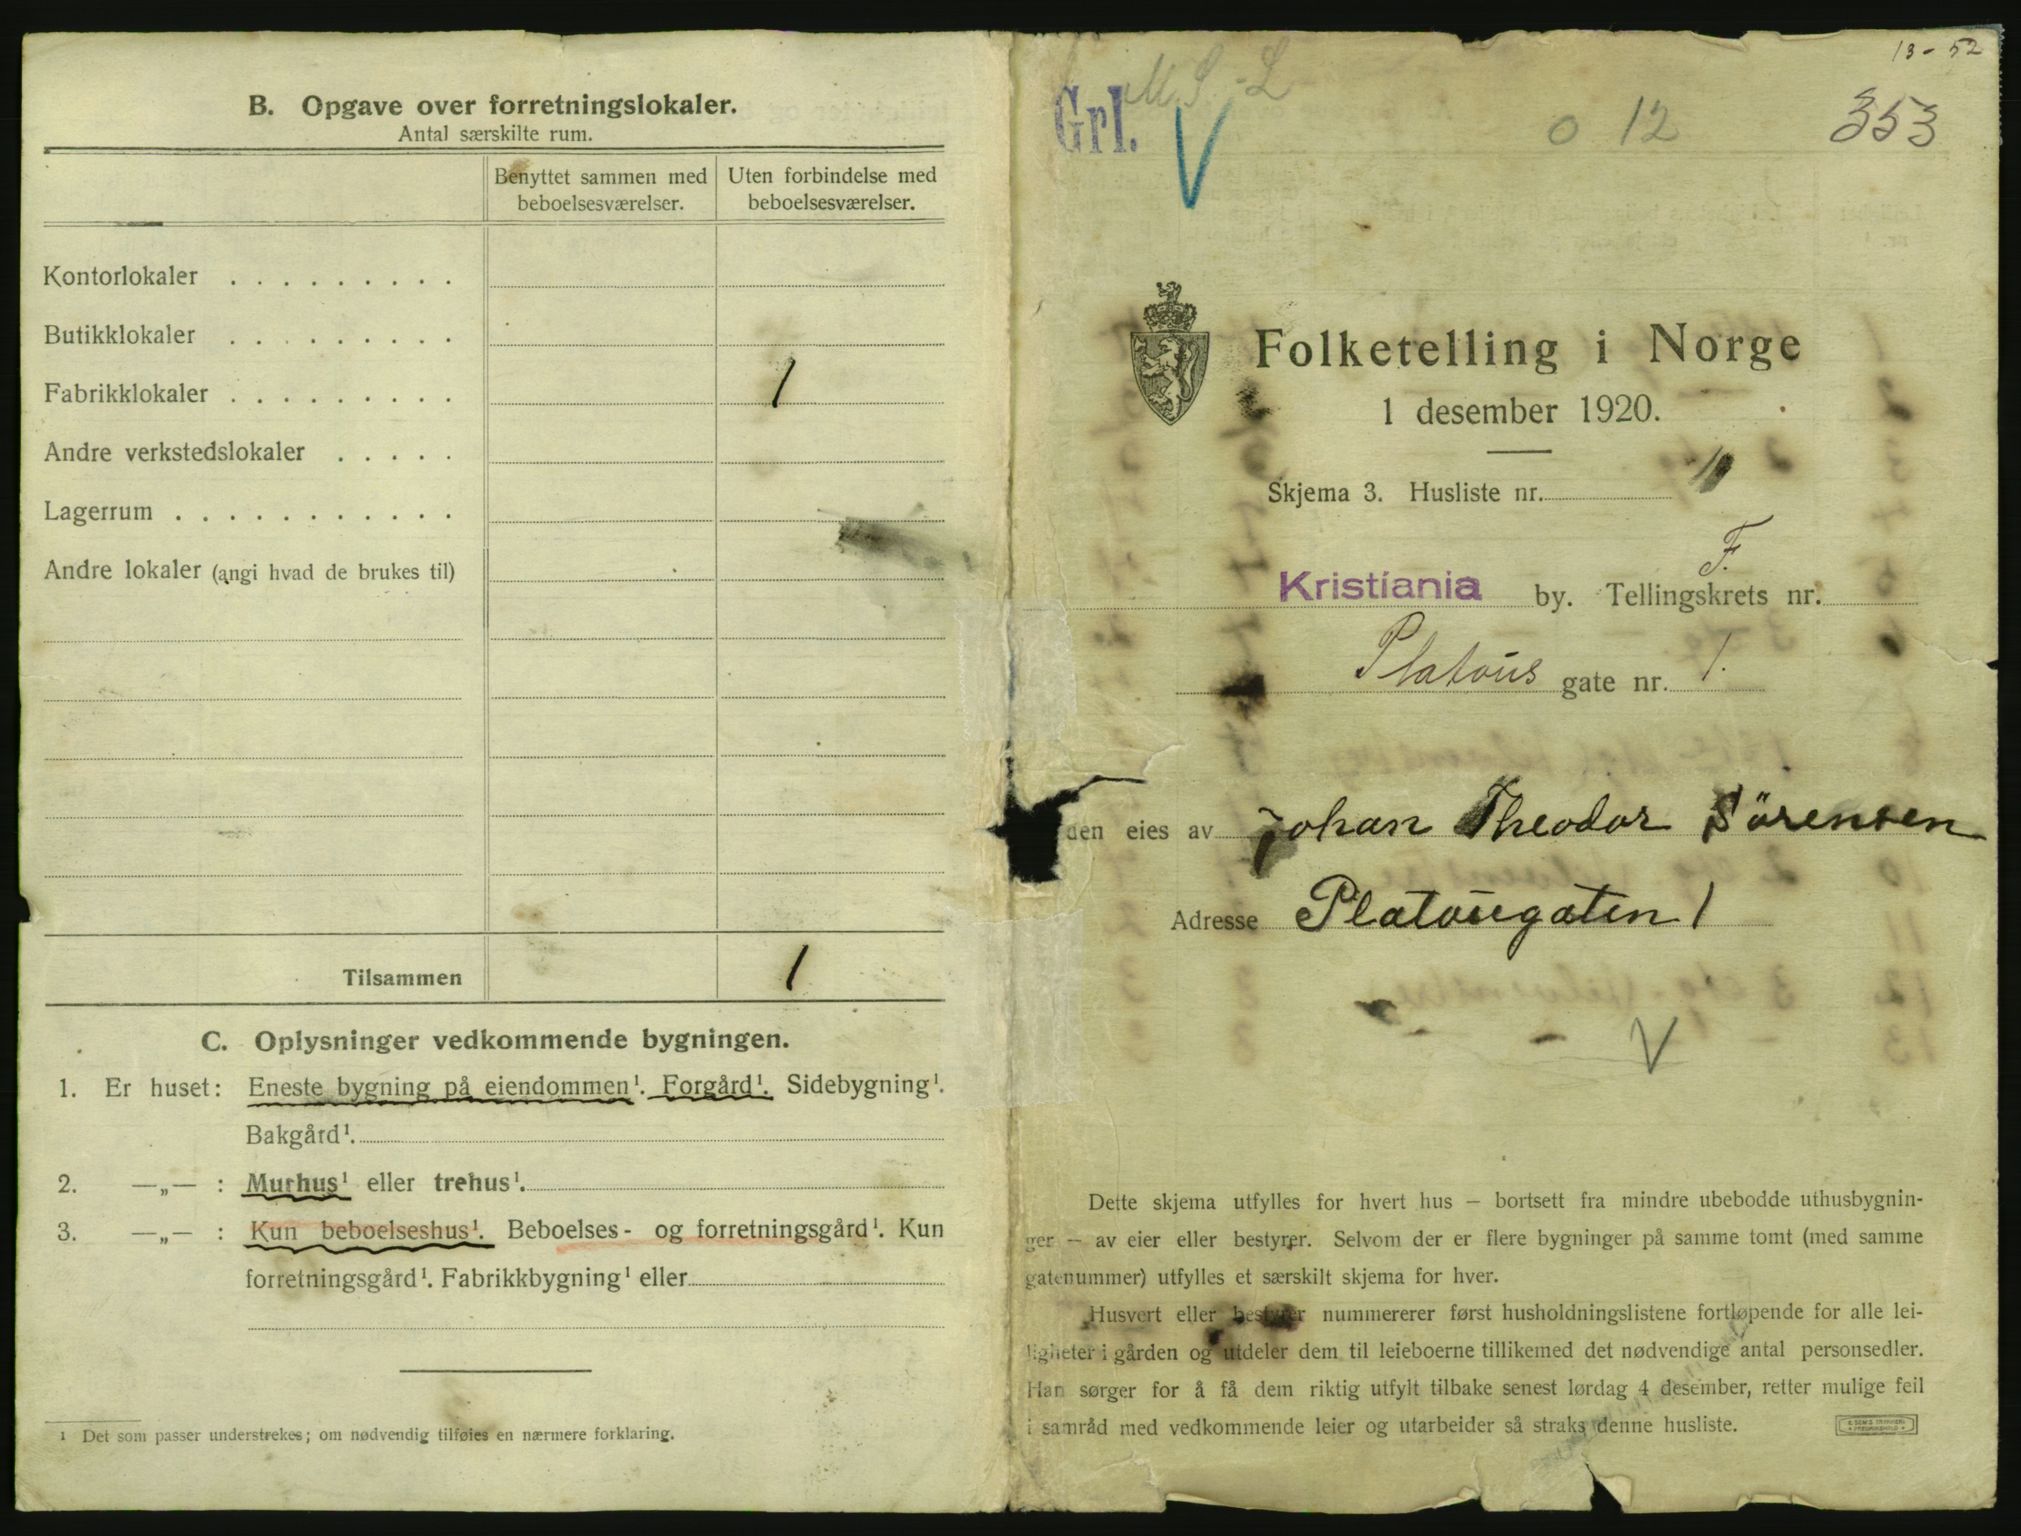 B. Opgave over forretningslokaler.
Antal særskilte rum.
Benyttet sammen med beboelsesværelser.
Uten forbindelse med beboelsesværelser.
Kontorlokaler . . . . . . . . .
Butikklokaler . . . . . . . . .
Fabrikklokaler . . . . . . . . . 1
Andre verkstedslokaler . . . . .
Lagerrum . . . . . . . . . . .
Andre lokaler (angi hvad de brukes til)
Tilsammen 1
C. Oplysninger vedkommende bygningen.
1. Er huset: Eneste bygning på eiendommen¹. Forgård¹. Sidebygning¹.
Bakgård¹.
2. —„— : Murhus¹ eller trehus¹.
3. —„— : Kun beboelseshus¹. Beboelses- og forretningsgård¹. Kun
forretningsgård¹. Fabrikkbygning¹ eller
¹ Det som passer understrekes; om nødvendig tilføies en nærmere forklaring.
13 - 52
M S - L
Grl. V 0 12 353
Folketelling i Norge
1 desember 1920.
Skjema 3. Husliste nr.
F.
Kristiania by. Tellingskrets nr.
Platous gate nr. 1.
den eies av Johan Theodor Sörensen
Adresse Platougaten 1
V
Dette skjema utfylles for hvert hus – bortsett fra mindre ubebodde uthusbygnin-
ger – av eier eller bestyrer. Selvom der er flere bygninger på samme tomt (med samme
gatenummer) utfylles et særskilt skjema for hver.
Husvert eller bestyrer nummererer først husholdningslistene fortløpende for alle lei-
ligheter i gården og utdeler dem til leieboerne tillikemed det nødvendige antal personsedler.
Han sørger for å få dem riktig utfylt tilbake senest lørdag 4 desember, retter mulige feil
i samråd med vedkommende leier og utarbeider så straks denne husliste.